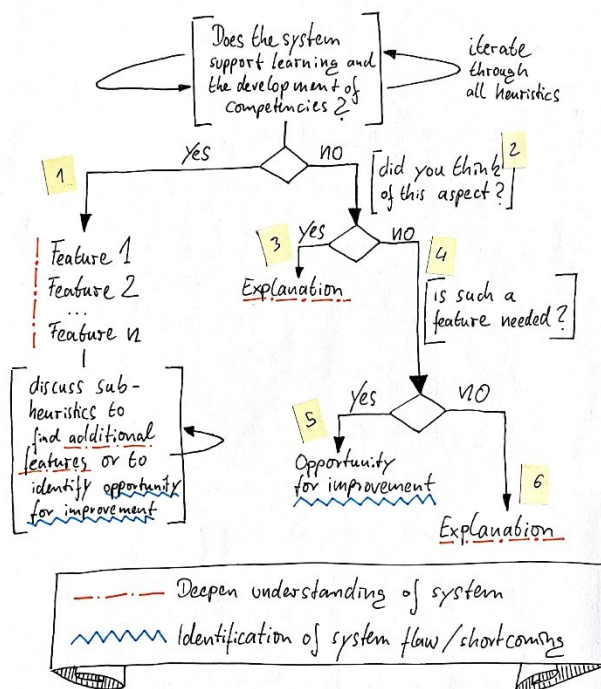 Does the system
support learning and
the development of
competencies?
iterate
through
all heuristics
1
yes
no
2
did you think
of this aspect?
Feature 1
Feature 2
...
Feature n
3
yes
no
4
Explanation
is such a
feature needed?
discuss sub-
heuristics to
find additional
features or to
identify opportunity
for improvement
5
yes
no
Opportunity
for improvement
6
Explanation
Deepen understanding of system
Identification of system flaw/shortcoming